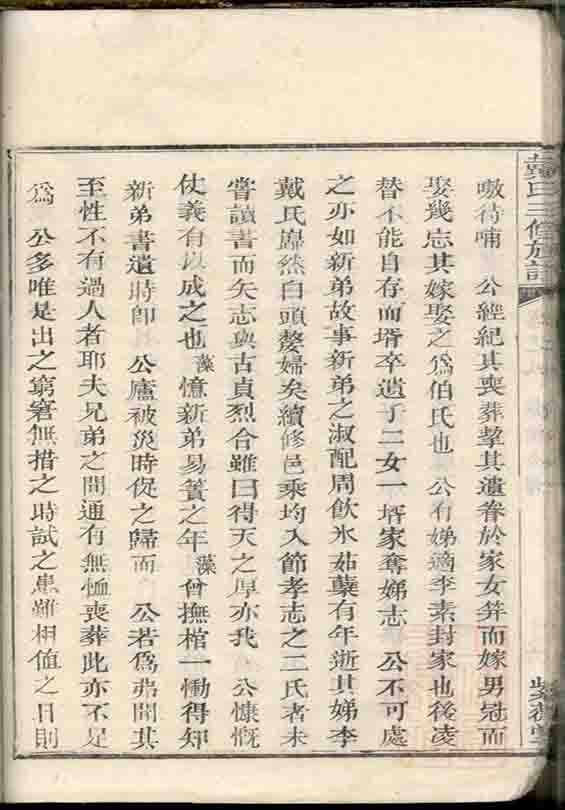 戴氏三修族譜
嗷待哺　公經紀其喪葬挈其遺眷於家女笄而嫁男冠而
娶幾忘其嫁娶之爲伯氏也　公有娣適李素封家也後凌
替不能自存而壻卒遺子二女一壻家奪娣志　公不可處
之亦如新弟故事新弟之淑配周飲氷茹蘗有年逝其娣李
戴氏巋然白頭嫠婦矣續修邑乘均入節孝志之二氏者未
嘗讀書而矢志與古貞烈合雖曰得天之厚亦我　公慷慨
仗義有以成之也藻憶新弟易簀之年藻曾撫棺一慟得知
新弟書遺時卽　公廬被災時促之歸而　公若爲弗聞其
至性不有過人者耶夫兄弟之間通有無恤喪葬此亦不足
爲　公多唯是出之窮窘無措之時試之患難相値之日則